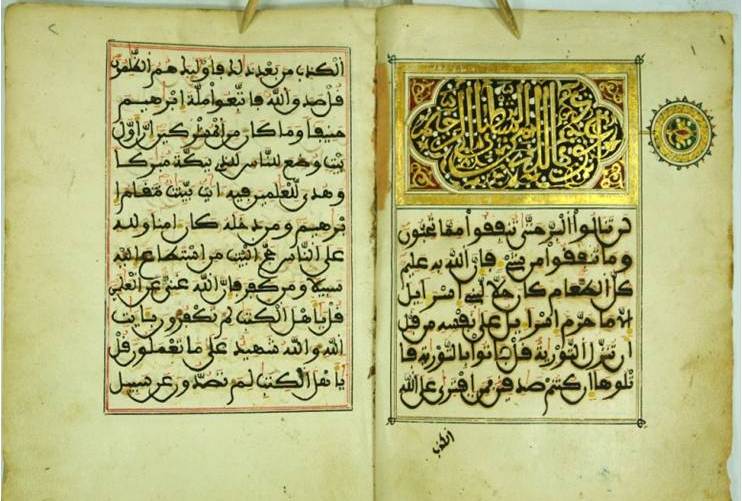 لن تنالوا البر حتى تنفقوا مما تحبون
وما تنفقوا من شيء فإن الله به عليم
كل الطعام كان حلا لبني اسراءيل
الا ما حرم اسراءيل على نفسه من قبل
ان تنزل التورية قل فاتوا بالتورية فا
تلوها ان كنتم صدقين فمن افترى على الله
الكذب
الكذب من بعد ذلك فاوليك هم الظلمون
قل صدق الله فاتبعوا ملة ابرهيم
حنيفا وما كان من المشركين ان اول
بيت وضع للناس للذي ببكة مبركا
وهدى للعلمين فيه ايت بينت مقام ا
برهيم ومن دخله كان امنا ولله
على الناس حج البيت من استطاع اليه
سبيلا ومن كفر فان الله غني عن العلمين
قل ياهل الكتب لم تكفرون بايت
الله والله شهيد على ما تعملون قل
ياهل الكتب لم تصدون عن سبيل